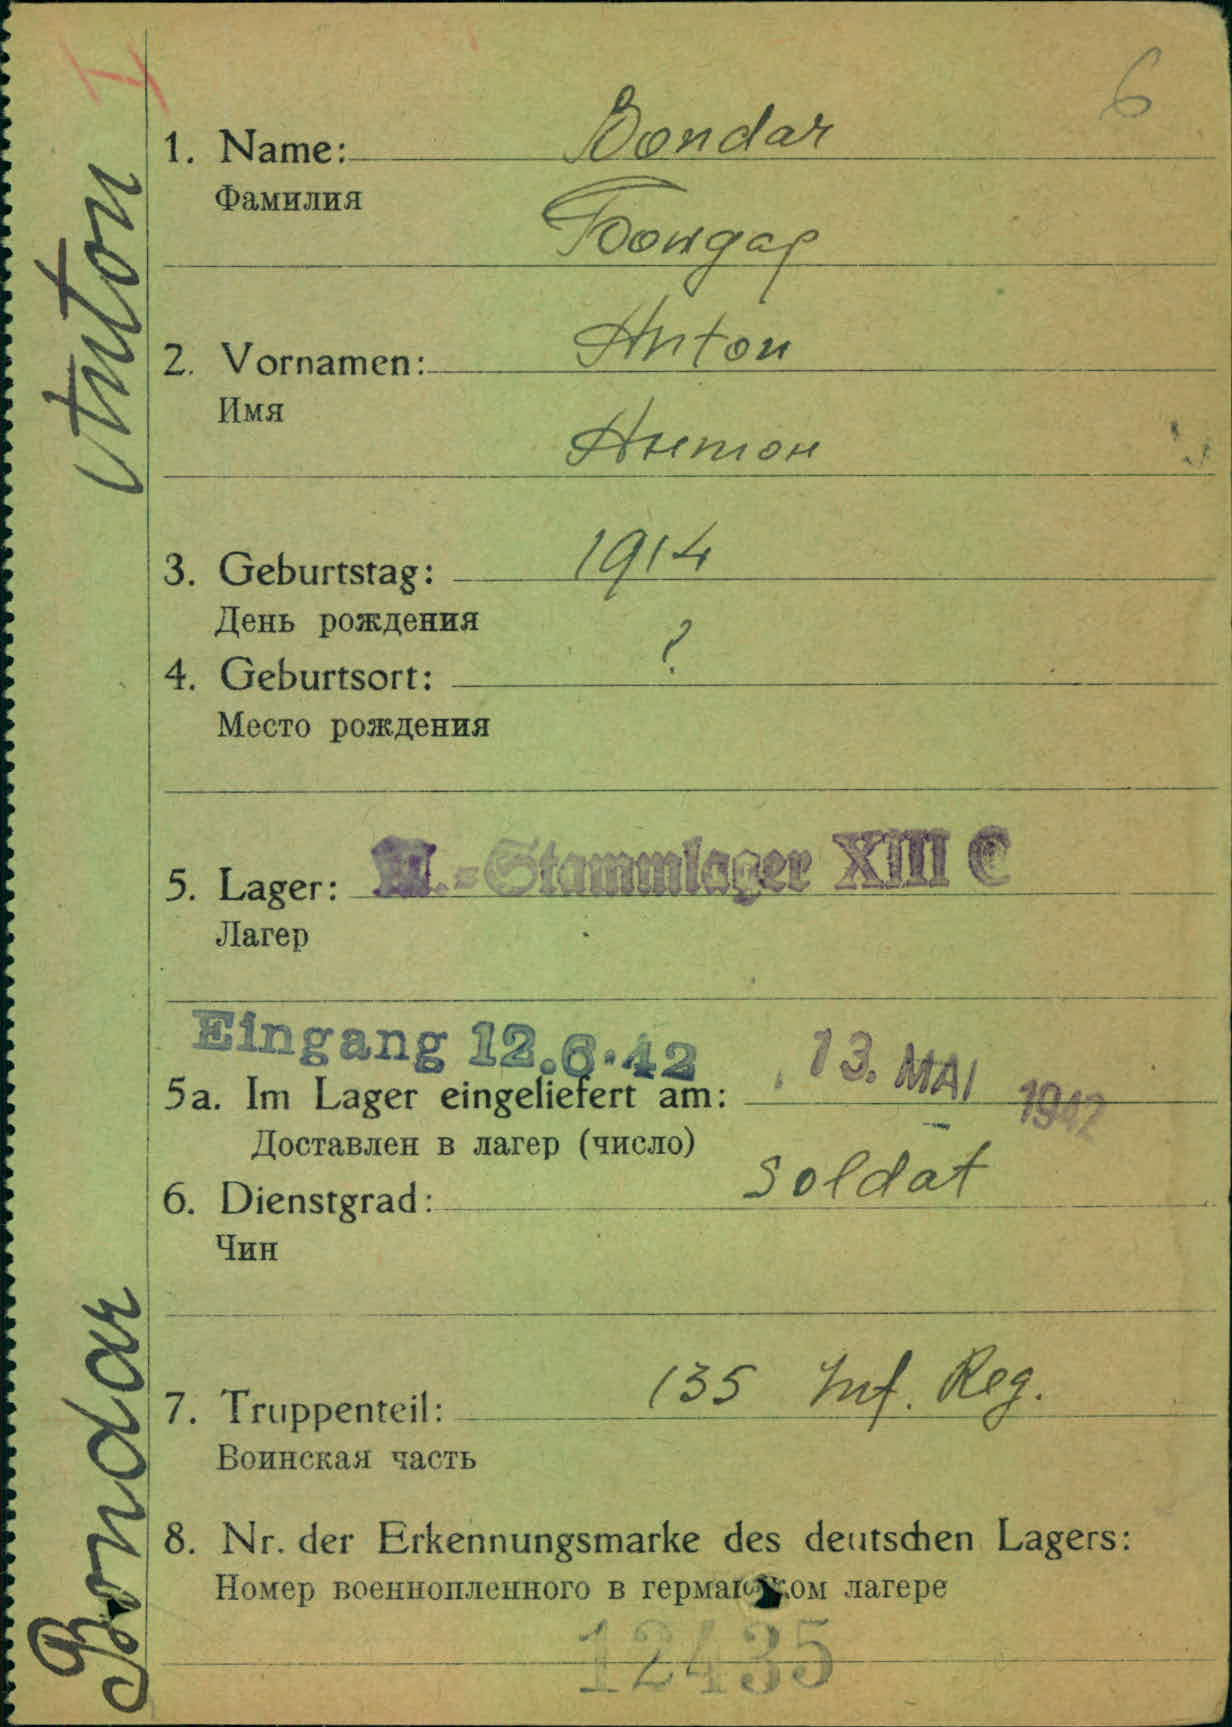 6
1. Name: Bondar
Фамилия
Бондар
2. Vornamen: Anton
Имя
Антон
3. Geburtstag: 1914
День рождения
4. Geburtsort: ?
Место рождения
5. Lager: M.=Stammlager XIII C
Лагер
Eingang 12.6.42
5a. Im Lager eingeliefert am: 13. MAI 1942
Доставлен в лагер (число)
6. Dienstgrad: Soldat
Чин
7. Truppenteil: 135 Inf. Reg.
Воинская часть
8. Nr. der Erkennungsmarke des deutschen Lagers:
Номер военнопленного в германском лагере
12435
Bondar Anton